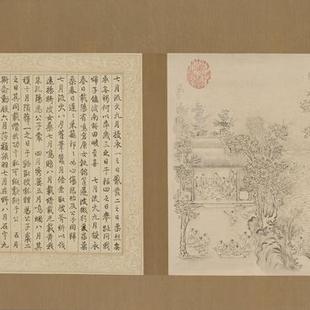 七月流火九月授衣一之日觱發二之日栗烈無
衣無褐何以卒歲三之日于耜四之日舉趾同我
婦子饁彼南畝田畯至喜 七月流火九月授衣
春日載陽有鳴倉庚女執懿筐遵彼微行爰求柔
桑春日遲遲采蘩祁祁女心傷悲殆及公子同歸
七月流火八月萑葦蠶月條桑取彼斧斨以伐
遠揚猗彼女桑七月鳴鵙八月載績載玄載黃我
朱孔陽為公子裳 四月秀葽五月鳴蜩八月其
穫十月隕蘀一之日于貉取彼狐狸為公子裘二
之日其同載纘武功言私其豵獻豜于公 五月
斯螽動股六月莎雞振羽七月在野八月在宇九